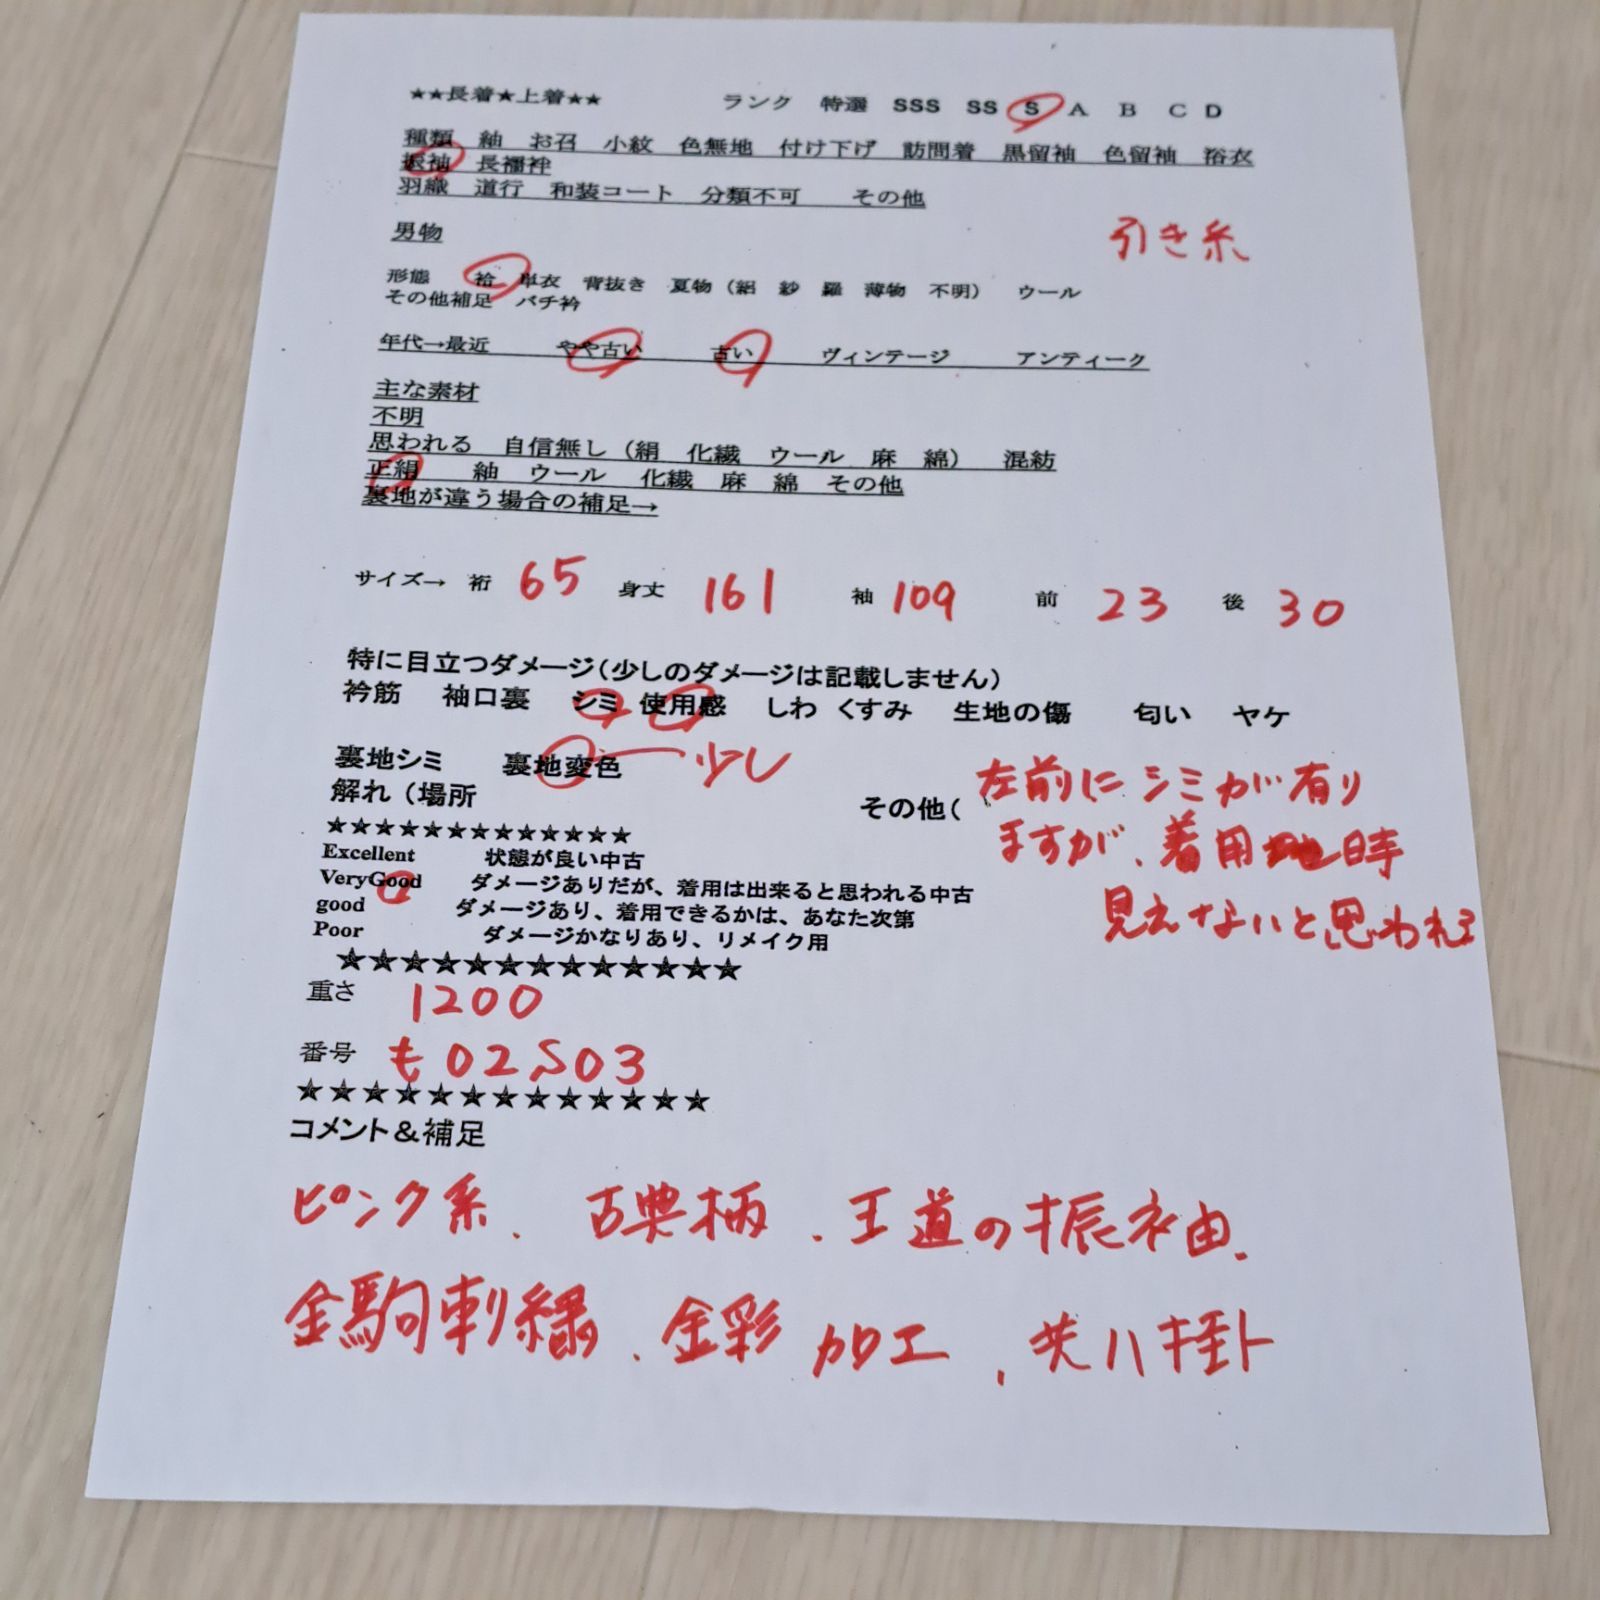 ★★長着★上着★★ ランク 特選 SSS SS S A B C D
種類 紬 お召 小紋 色無地 付け下げ 訪問着 黒留袖 色留袖 浴衣
振袖 長襦袢
羽織 道行 和装コート 分類不可 その他
男物
引き糸
形態 袷 単衣 背抜き 夏物（絽 紗 羅 薄物 不明） ウール
その他補足 バチ衿
年代→最近 やや古い 古い ヴィンテージ アンティーク
主な素材
不明
思われる 自信無し（絹 化繊 ウール 麻 綿） 混紡
正絹 紬 ウール 化繊 麻 綿 その他
裏地が違う場合の補足→
サイズ→ 裄 65 身丈 161 袖 109 前 23 後 30
特に目立つダメージ（少しのダメージは記載しません）
衿筋 袖口裏 シミ 使用感 しわ くすみ 生地の傷 匂い ヤケ
裏地シミ 裏地変色 少し
解れ（場所 その他（
左前にシミが有り
ますが、着用時
見えないと思われる
★★★★★★★★★★★★★
Excellent 状態が良い中古
VeryGood ダメージありだが、着用は出来ると思われる中古
good ダメージあり、着用できるかは、あなた次第
Poor ダメージかなりあり、リメイク用
★★★★★★★★★★★★★
重さ 1200
番号 も02503
★★★★★★★★★★★★★
コメント＆補足
ピンク系、古典柄、王道の振袖、
金駒刺繍、金彩加工、共八掛